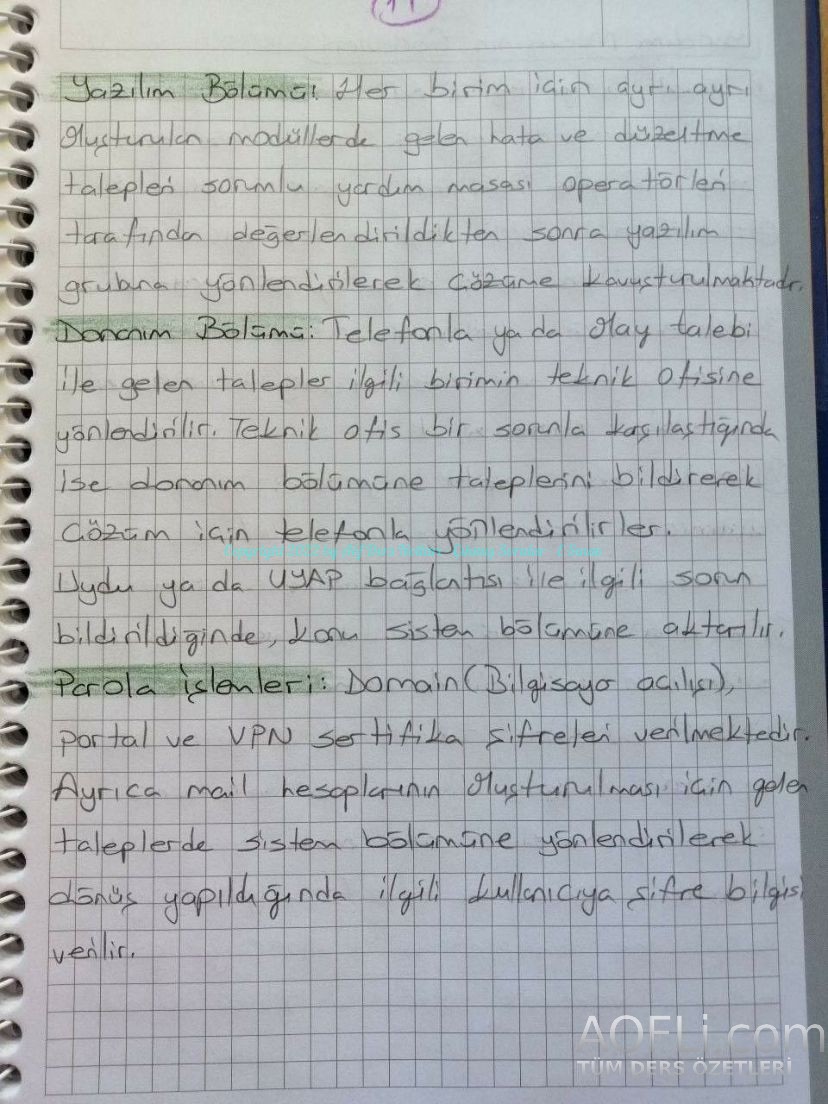 11
Yazılım Bölümü: Her birim için ayrı ayrı
oluşturulan modüllerde gelen hata ve düzeltme
talepleri sorumlu yardım masası operatörleri
tarafından değerlendirildikten sonra yazılım
grubuna yönlendirilerek çözüme kavuşturulmaktadır.
Donanım Bölümü: Telefonla ya da olay talebi
ile gelen talepler ilgili birimin teknik ofisine
yönlendirilir. Teknik ofis bir sorunla kaşılaştığında
ise donanım bölümüne taleplerini bildirerek
çözüm için telefonla yönlendirilirler.
Uydu ya da UYAP bağlantısı ile ilgili sorun
bildirildiğinde, konu sistem bölümüne aktarılır.
Parola işlemleri: Domain (Bilgisayar açılışı),
portal ve VPN sertifika şifreleri verilmektedir.
Ayrıca mail hesaplarının oluşturulması için gelen
taleplerde sistem bölümüne yönlendirilerek
dönüş yapıldığında ilgili kullanıcıya şifre bilgisi
verilir.
AOFLi.com
TÜM DERS ÖZETLERİ